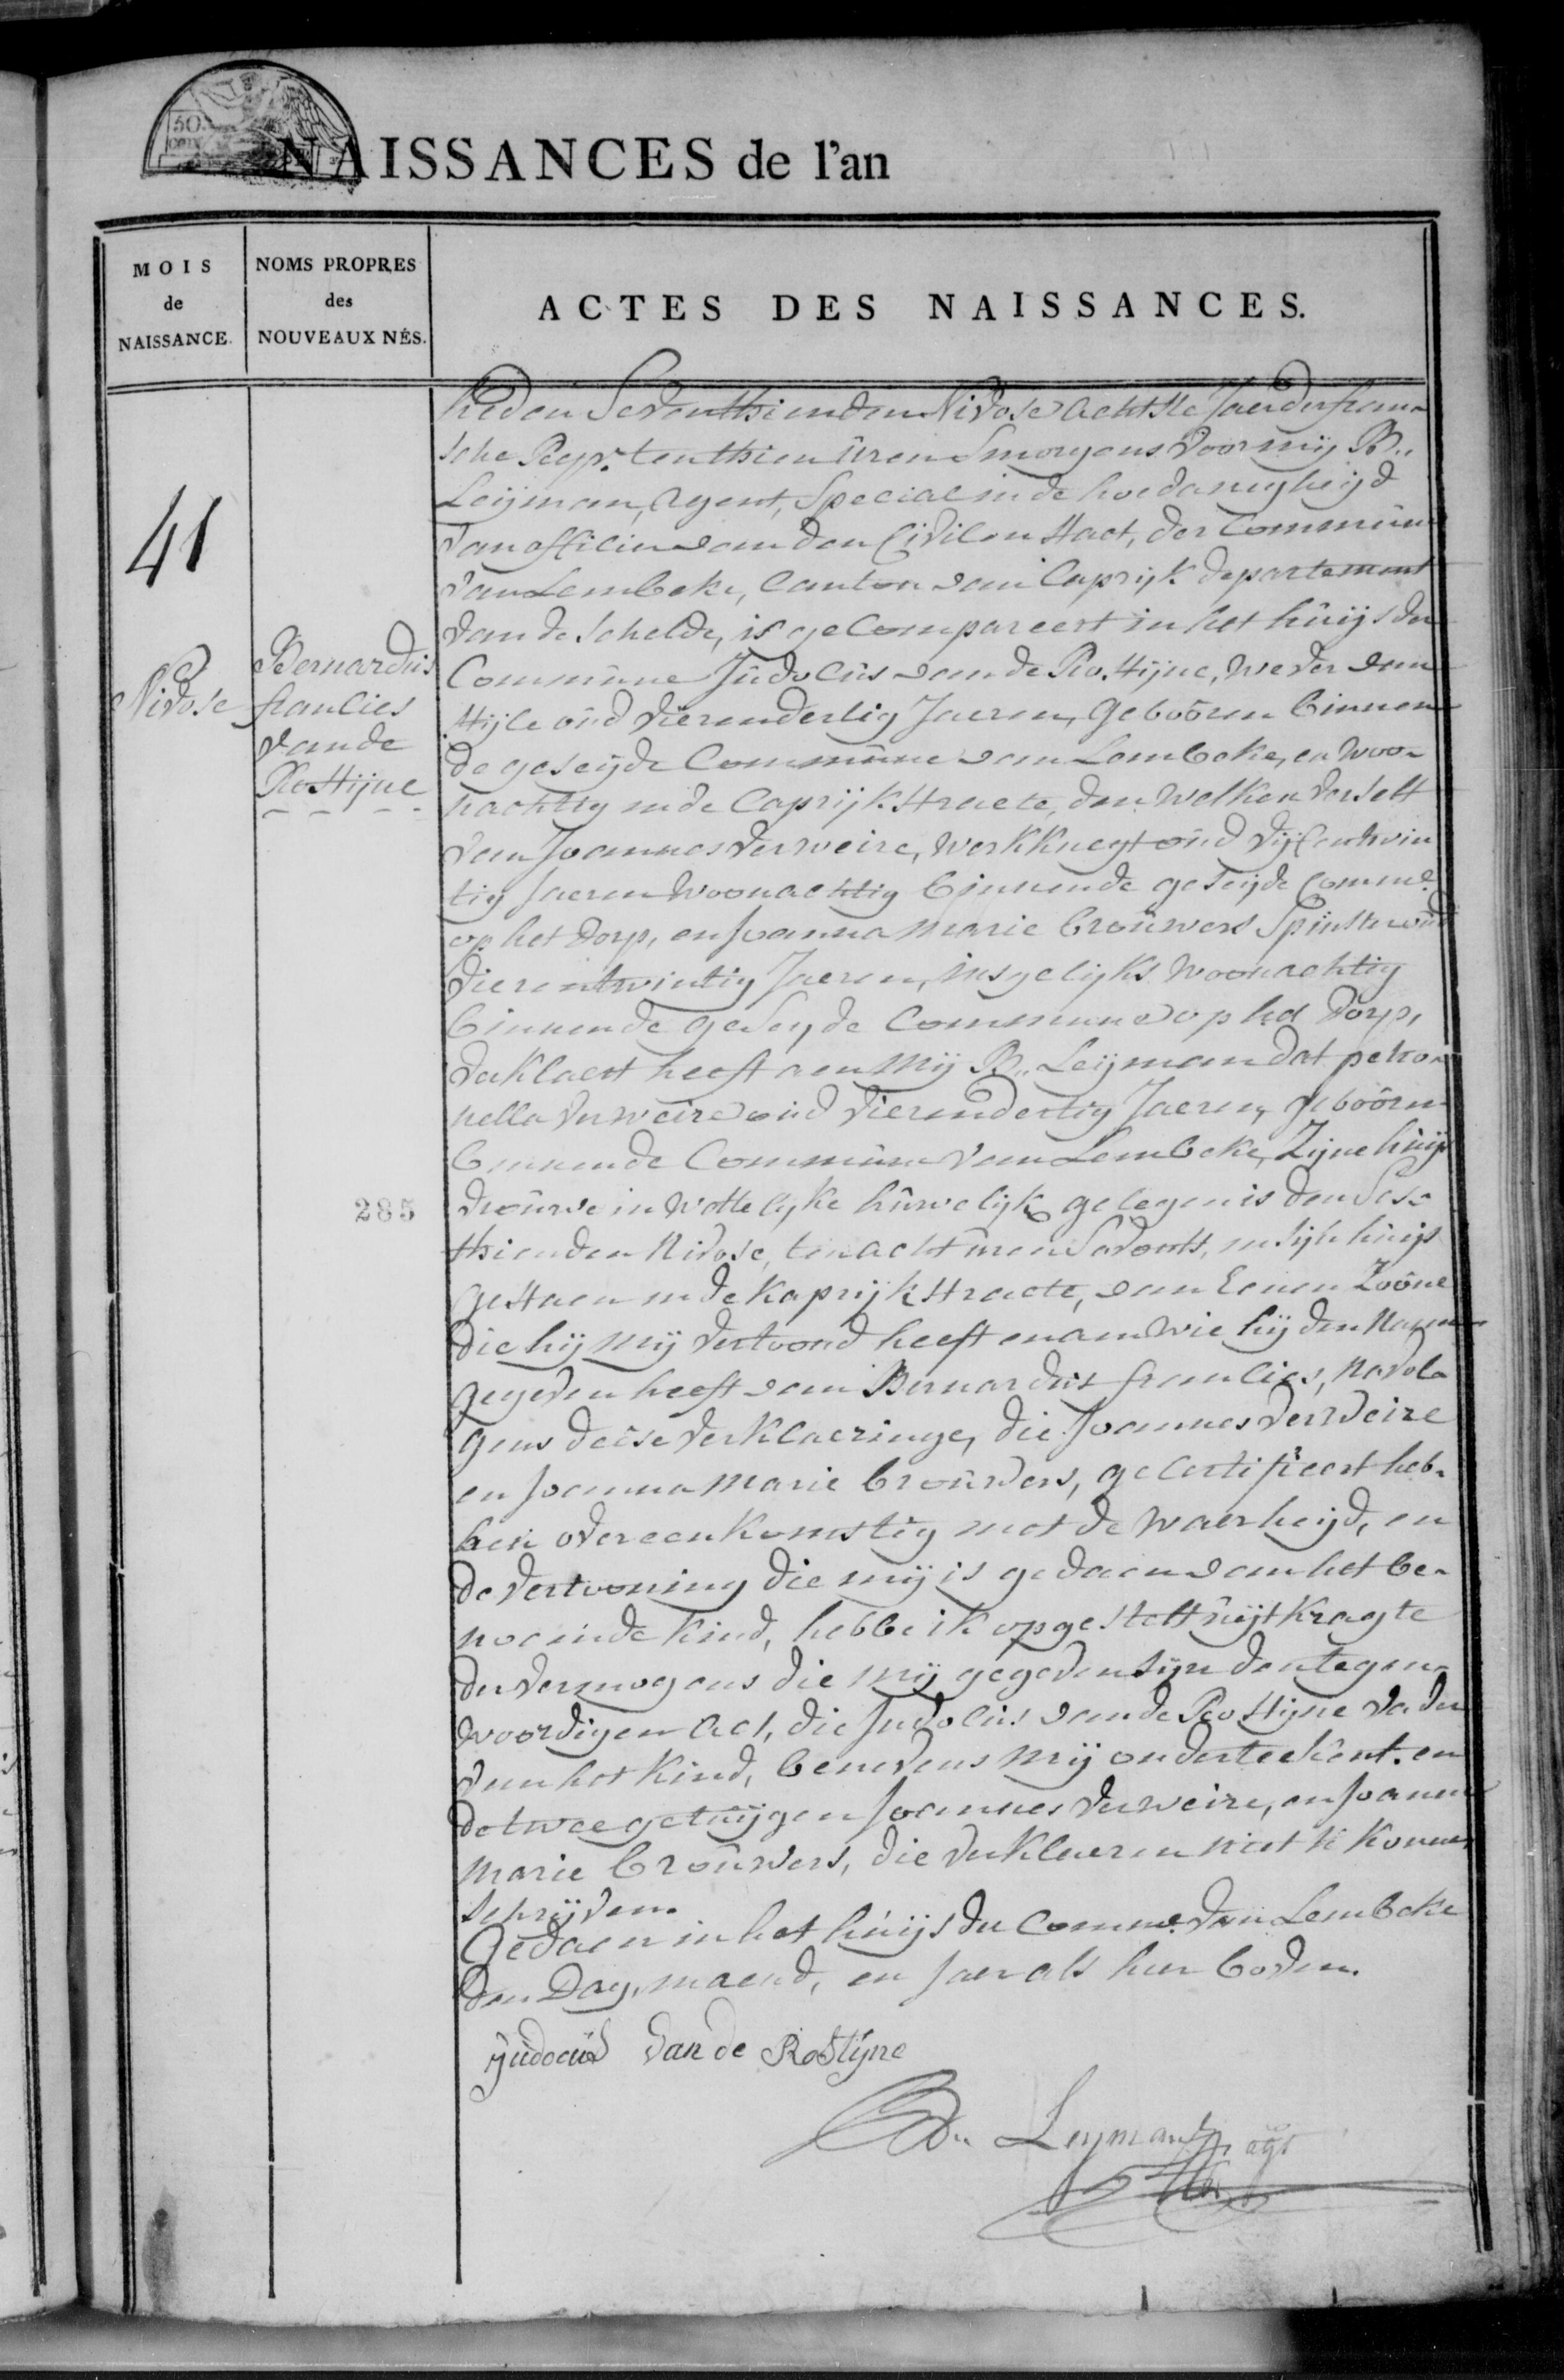 50
NAISSANCES de l'an
MOIS
de
NAISSANCE.
NOMS PROPRES
des
NOUVEAUX NÉS.
ACTES DES NAISSANCES.
41
Nivose
Bernardus
francies
vande
Rostijne
285
heden Seventhienden Nivose achtste Jaer der fran-
sche Rep. ten thien uren Smorgens voor mij B.,
Leijman, Agent, Special in de hoedanigheijd
van officier van den Civilen Staet, der Commune
van Lembeke, Canton van Caprijk departement
van de Schelde, is gecompareert in het huijs der
Commune Judocus van de Rostijne, wever van
Stijle oud vierendertig Jaeren, Gebooren binnen
de geseijde Commune van Lembeke, en woo-
nachtig in de Caprijkstraete, den welken verselt
van Joannes Verweire, werkknegt oud vijfentwin
tig Jaeren woonachtig binnen de geseijde Comme.
op het dorp, en Joanna Marie Brouwers Spinster oud
vierentwintig Jaeren, insgelijks woonachtig
binnen de geseyde Commune op het Dorp,
verklaert heeft aen mij B., Leijman dat petro-
nella Verweire oud vierendertig Jaeren, gebooren
binnen de Commune van Lembeke, Zijne huijs
vrouwe in wettelijke huwelijk gelegen is den Ses-
thienden Nivose, ten acht uren Savonts, in sijn huijs
gestaen in de Kaprijkstraete, van Eenen Zoone
die hij mij vertoond heeft en aen wie hij den Naemen
gegeven heeft van Bernardus francies, navol-
gens deese verklaeringe, die Joannes Verweire
en Joanna Marie Brouwers, gecertifieert heb-
ben overeenkomstig met de waerheijd, en
de vertooning die mij is gedaen van het be-
noemde kind, hebbe ik opgestelt uijt kragte
der vermogens die mij gegeven sijn den tegen-
woordigen Act, die Judocus van de Rostijne vader
van het kind, benevens mij onderteekent. en
de twee getuijgen Joannes Verweire, en Joanna
Marie Brouwers, die verklaeren niet te konnen
schrijven.
Gedaen in het huijs der Comme. van Lembeke
den Dag, maend, en Jaer als hier boven.
Judocus van de Rostijne
B., Leyman agt